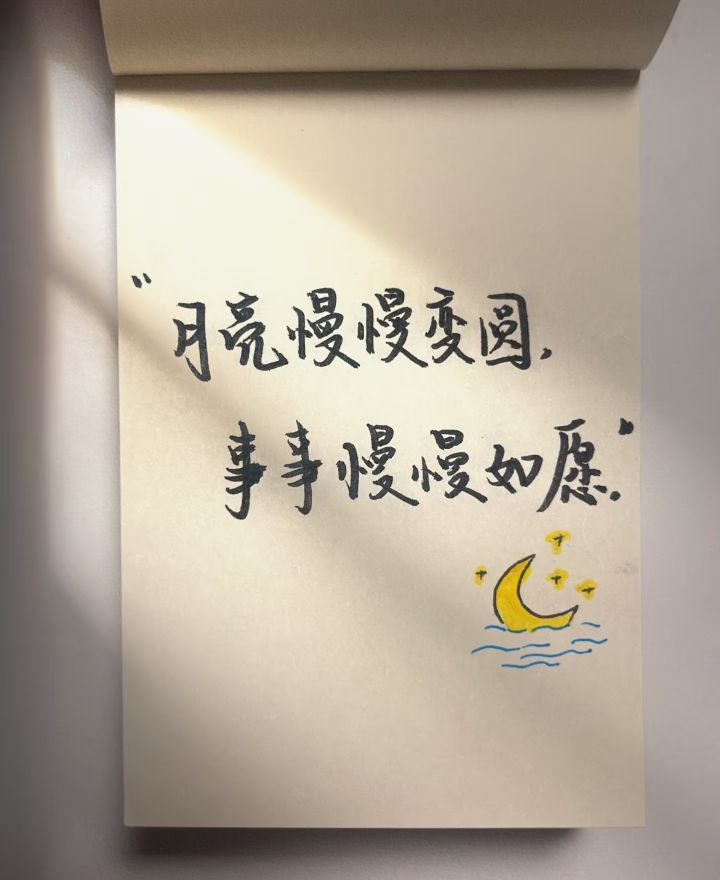 “月亮慢慢变圆,
事事慢慢如愿.”